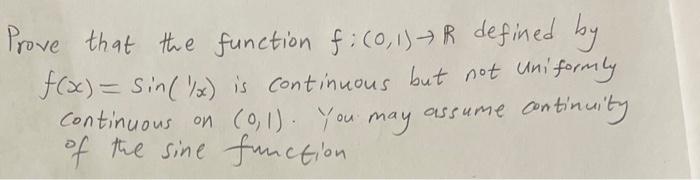 Prove that the function f:(0,1)→R defined by
f(x) = Sin(1/x) is continuous but not uniformly
continuous on (0,1). You may assume continuity
of the sine function